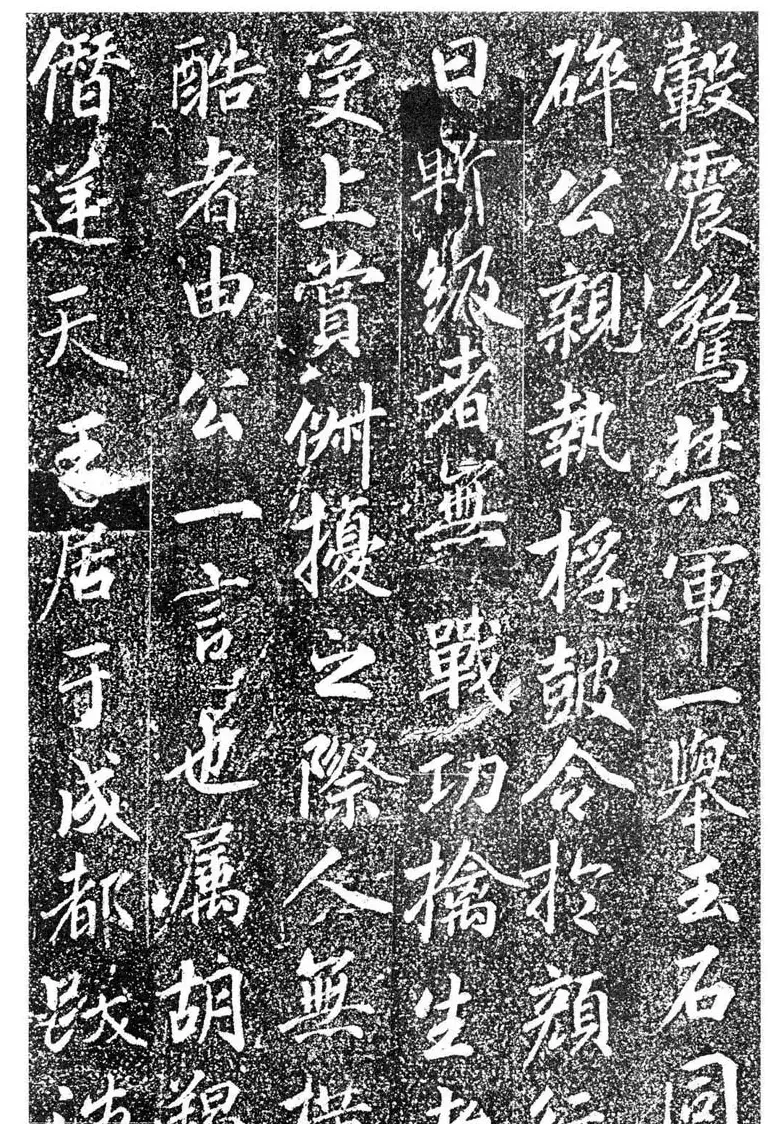 轂震驚禁軍一舉玉石同
碎公親執桴鼓令於顏行
曰斬級者無戰功擒生者
受上賞俶擾之際人無橫
酷者由公一言也属胡羯
僭逆天王居于成都跋涉